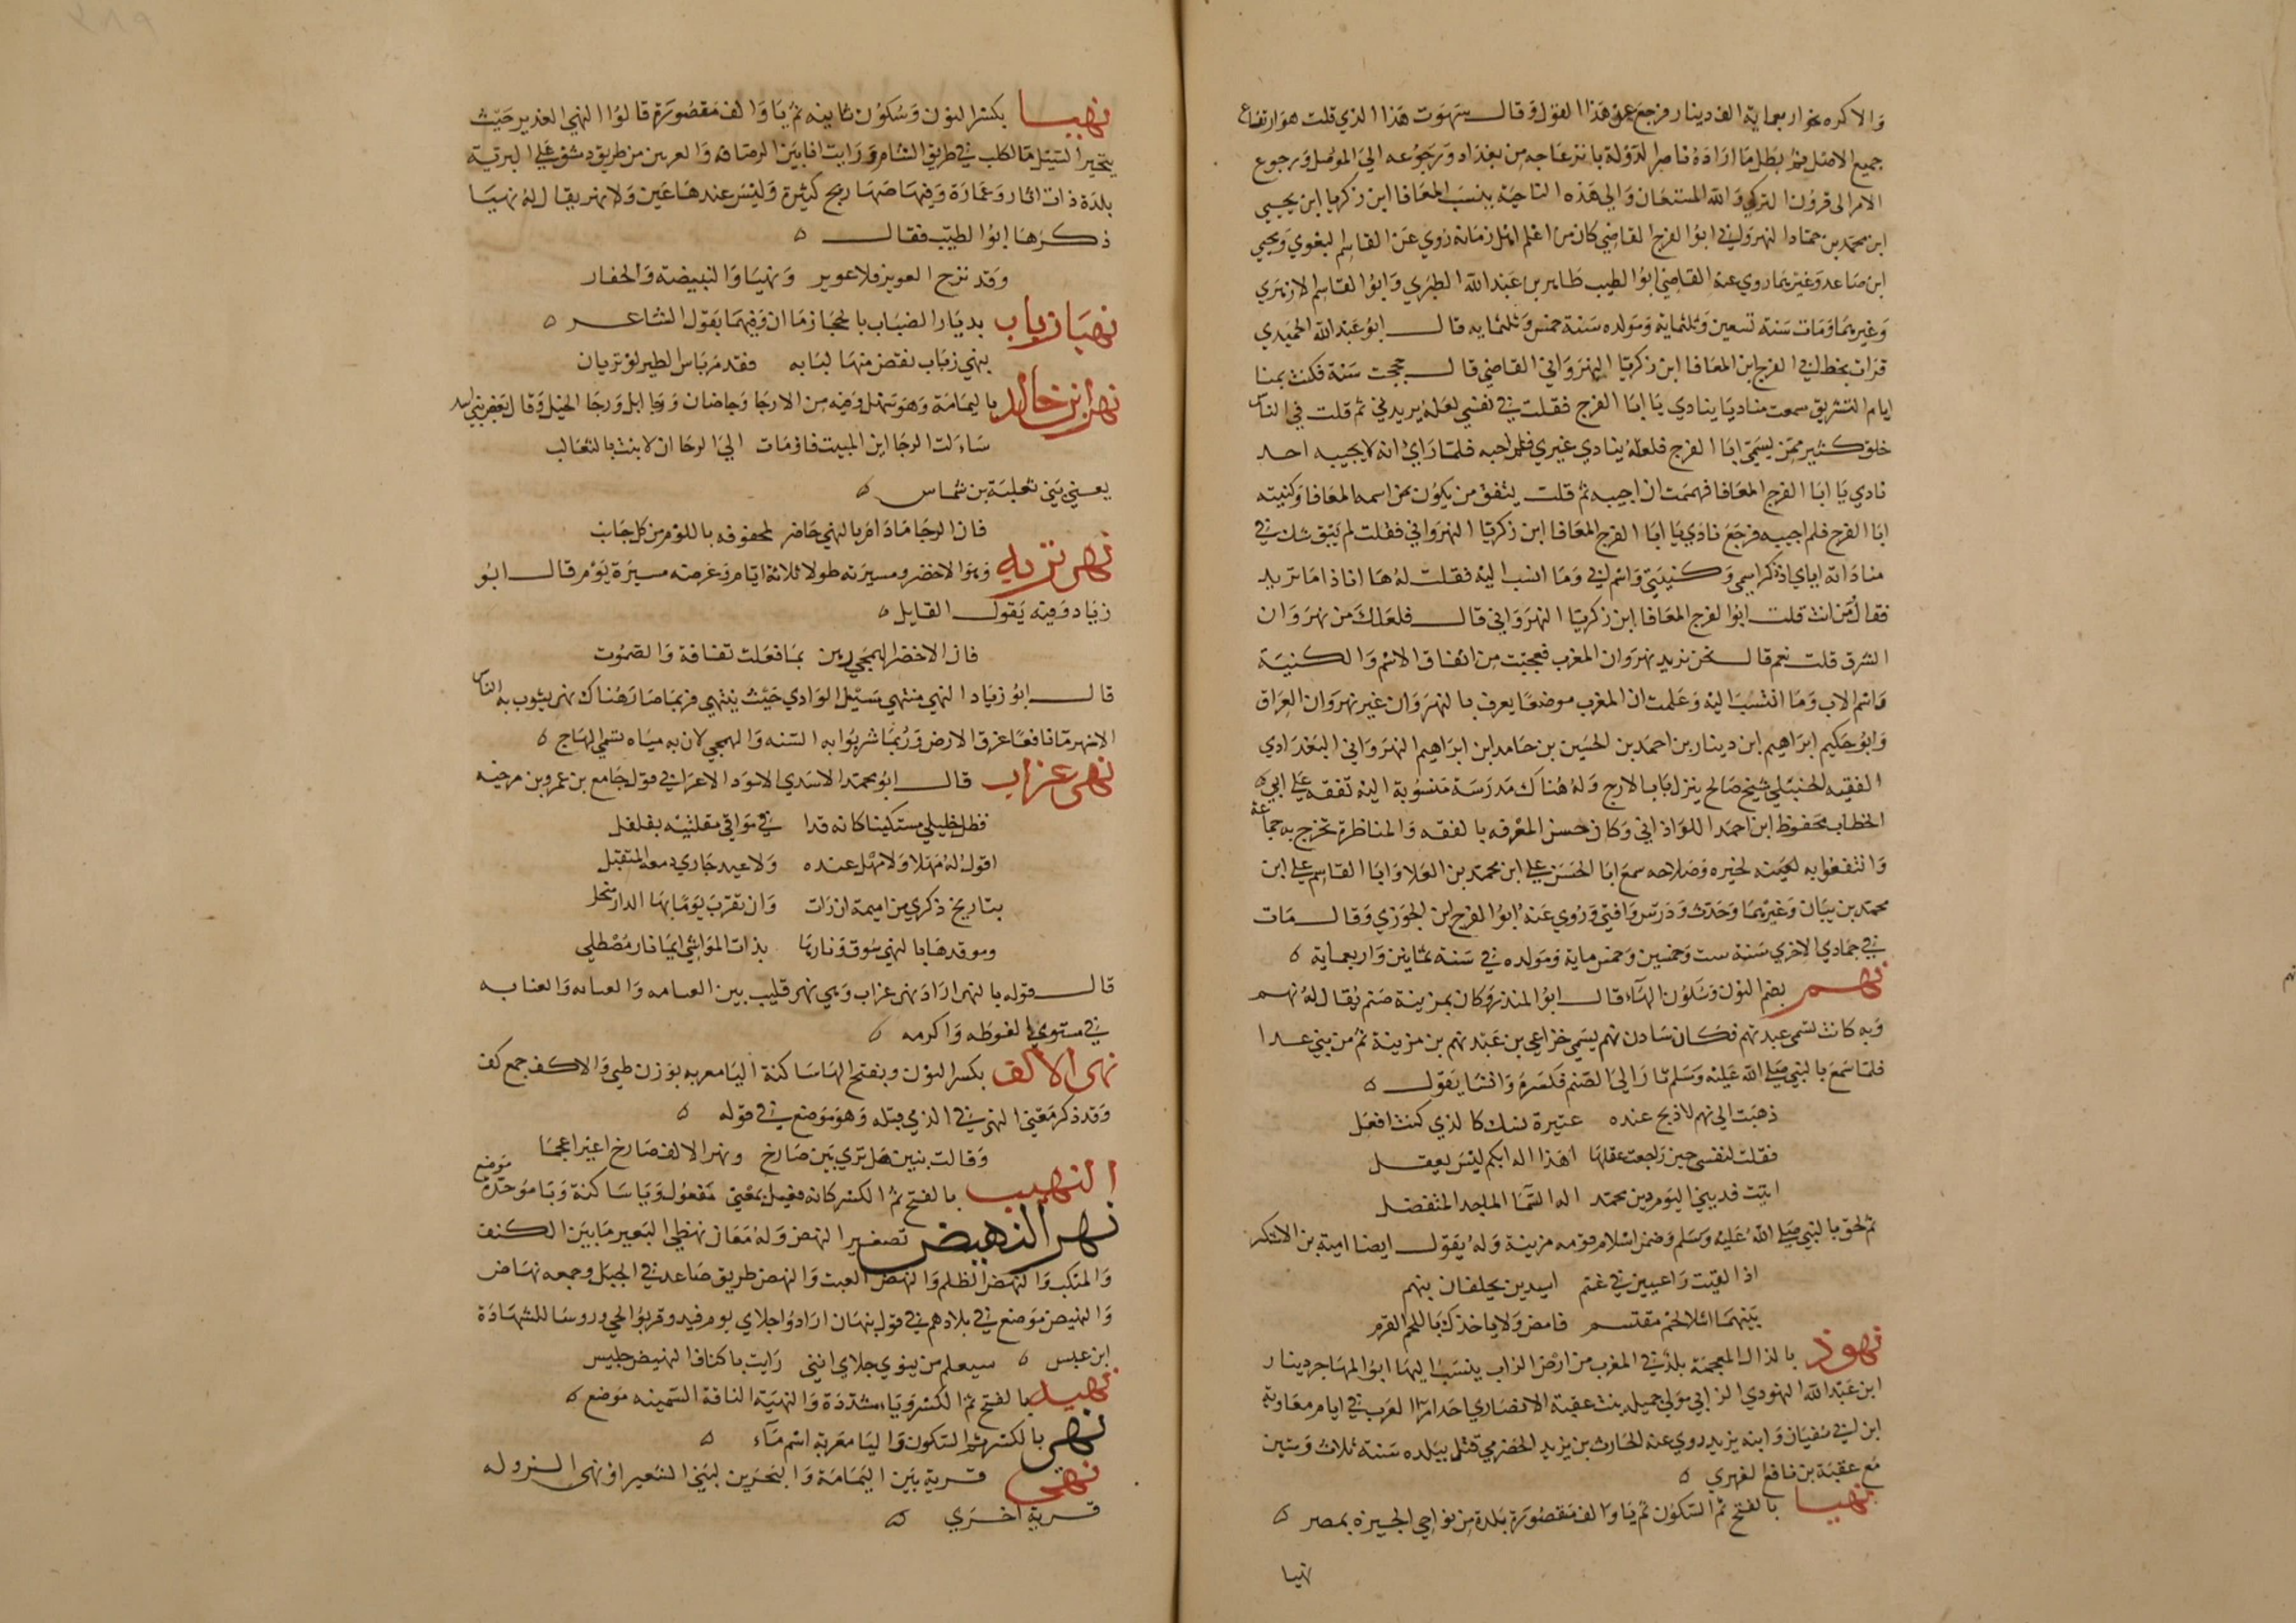 والاكره نحوار بعماية الف دينار فرجع عن هذا القول وقال سهوت هذا الذي قلت هو ارتفاع
جميع الاصل ثم بطل ما اراده ناصر الدولة بانزعاجه من بغداد ورجوعه الى الموصل ورجوع
الامر الى قرون التركي والله المستعان والى هذه الناحية ينسب المعافا ابن زكريا ابن يحيى
ابن محمد بن حماد النهرواني ابو الفرج القاضي كان من اعلم اهل زمانه روي عن القاسم البغوي ويحيى
ابن صاعد وغيرهما روي عنه القاضي ابو الطيب طاهر بن عبد الله الطبري وابو القاسم الازهري
وغيرهما ومات سنة تسعين وثلثماية ومولده سنة خمس وثلثماية قال ابو عبد الله الحميدي
قرات بخط ابي الفرج ابن المعافا ابن زكريا النهرواني القاضي قال حججت سنة فكنت بمنا
ايام التشريق سمعت مناديا ينادي يا ابا الفرج فقلت في نفسي لعله يريدني ثم قلت في الناس
خلق كثير ممن يسمى ابا الفرج فلعله ينادي غيري فلم اجبه فلما راي انه لا يجيبه احد
نادي يا ابا الفرج المعافا فهممت ان اجيبه ثم قلت يتفق من يكون من اسمه المعافا وكنيته
ابا الفرج فلم اجيبه فرجع نادي يا ابا الفرج المعافا ابن زكريا النهرواني فقلت لم يبق شك في
مناداته اياي اذ ذكر اسمي وكنيتي واسم ابي وما انسب اليه فقلت له ها انا ذا ما تريد
فقال من انت قلت ابو الفرج المعافا ابن زكريا النهرواني قال فلعلك من نهروان
الشرق قلت نعم قال نحن نريد نهروان المغرب فعجبت من اتفاق الاسم والكنية
واسم الاب وما انتسب اليه وعلمت ان المغرب موضعا يعرف بالنهروان غير نهروان العراق
وابو حكيم ابراهيم ابن دينار بن احمد بن الحسين بن حامد ابن ابراهيم النهرواني البغدادي
الفقيه الحنبلي شيخ صالح ينزل باب الازج وله هناك مدرسة منسوبة اليه تفقه على ابي
الخطاب محفوظ ابن احمد الكلواذاني وكان حسن المعرفه بالفقه والمناظرة تخرج به جماعة
وانتفعوا به لخيره وصلاحه سمع ابا الحسن علي ابن محمد بن العلاو ابا القاسم علي ابن
محمد بن بيان وغيرهما وحدث ودرس وافتى وروي عنه ابو الفرج ابن الجوزي وقال مات
في جمادي الاخري سنة ست وخمسين وخمس ماية ومولده في سنة ثمانين واربعماية
نهم بضم النون وسكون الهاء قال ابو المنذر وكان بمزينة صنم يقال له نهم
وبه كانت تسمى عبد نهم فكان سادن نهم يسمى خزاعي بن عبد نهم بن مزينة ثم من بني عدا
فلما سمع بالنبي صلى الله عليه وسلم ثار الى الصنم فكسره وانشا يقول
ذهبت الى نهم لاذبح عنده عتيرة نسك كالذي كنت افعل
فقلت لنفسي حين راجعت عقلها اهذا اله ابكم ليس يعقل
ابيت فديني اليوم دين محمد اله السما الماجد المتفضل
ثم لحق بالنبي صلى الله عليه وسلم وضمن اسلام قومه مزينة وله يقول ايضا امية بن الاشكر
اذا لقيت راعيين في غنم اسيدين يحلفان بنهم
بينهما اشلا لحم مقتسم فامض ولا ياخذك بااللحم القرم
نهوذ بالذال المعجمة بلد في المغرب من ارض الزاب ينسب اليها ابو المهاجر دينار
ابن عبد الله النهوذي الزابي مولى جميلة بنت عقبة الانصاري احد امرا العرب في ايام معاوية
ابن ابي سفيان وابنه يزيد روي عنه الحارث بن يزيد الحضرمي قتل ببلده سنة ثلاث وستين
مع عقبة بن نافع الفهري
نهيا بالفتح ثم السكون ثم يا والف مقصورة بلدة من نواحي الجيزة بمصر
نهيا
نهيا بكسر النون وسكون ثانيه ثم يا والف مقصورة قالوا النهي الغدير حيث
يتحير السيل ما لكلب في طريق الشام ورايت انا بين الرصافه والعربين من طريق دمشق على البرية
بلدة ذات اثار وعمارة وفيها صهاريج كثيرة وليس عندها عين ولا نهر يقال له نهيا
ذكرها ابو الطيب فقال
وقد نزح العوير فلا عوير ونهيا والبييضه والجفار
نهيا زباب بديار الضباب بالحجاز ما ان وفيهما يقول الشاعر
بنهي زباب نقض منها لبابه فقد مر باس الطير لو تريان
نهي ابن خالد باليمامة وهو سهل وفيه من الارجا وجاضان ورجا ابل ورجا الخيل وقال بعض بني اسد
ساءلت الرجا اين المبيت فاومات الي الرجا ان لا بنت بالثعالب
يعني بني ثعلبة بن شماس
فان الرجا مادام بالنهي حاضر لمحفوفه باللؤم من كل جانب
نهي تربه وهو الاخضر ومسيرته طولا ثلاثة ايام وعرضه مسيرة يوم قال ابو
زياد وفيه يقول القايل
فان الاخضر الهمجي رهن بما فعلت نفاثة والصموت
قال ابو زياد النهي منتهي سيل الوادي حيث ينتهي فربما صار هناك نهي يشرب به الناس
الانهر ما ناقعا عزق الارض وربما شربوا به السنه والهمجي لان به مياه تسمى الهاج
نهي غراب قال ابو محمد الاسدي الاسود الاعرابي في قول جامع بن عمرو بن مرخيه
فظل خليلي مستكينا كانه قدا في مواقي مقلتيه بفلفل
اقول له مهلا ولا مهل عنده ولا عيد جاري دمعه المتقبل
بتاريخ ذكري من اميمة ان رات وان تقرب يوما بها الدار تنحل
وموقدها بالنهي سوق ونارها بذات المواشي ايما نار مصطلي
قال قوله بالنهي اراد نهي غراب وهي نهر قليب بين العبامه والعنابه
في مستوي الغوطه واكرمه
نهي الاكف بكسر النون وبفتح الها ساكنة اليا معربه بوزن ظبي والاكف جمع كف
وقد ذكر معنى النهي في الذي قبله وهو موضع في قوله
وقالت تبين هل ترى بين صارخ ونهي الاكف صارخ اغير اعجما
النهيب بالفتح ثم الكسر كانه فعيل بمعنى مفعول ويا ساكنة وبا موحدة موضع
نهر النهيض تصغير النهض وله معان نهيظي البعير ما بين الكتف
والمنكب والنهض الظلم والنهض العبت والنهض طريق صاعد في الجبل وجمعه نهاض
والنهيض موضع في بلادهم في قول بنهان ارادوا اجلاي يوم فيد وقربوا لحي وروسا للشهادة
ابن عبس سيعلم من ينوي جلاي انني رايت باكناف النهيض جليس
نهيد بالفتح ثم الكسر ويا مشددة والنهية الناقة السمينه موضع
نهي بالكسر ثم السكون واليا معربة اسم ماء
نهي قرية بين اليمامة والبحرين لبني الشعيرا ونهي السزوله
قرية اخرى